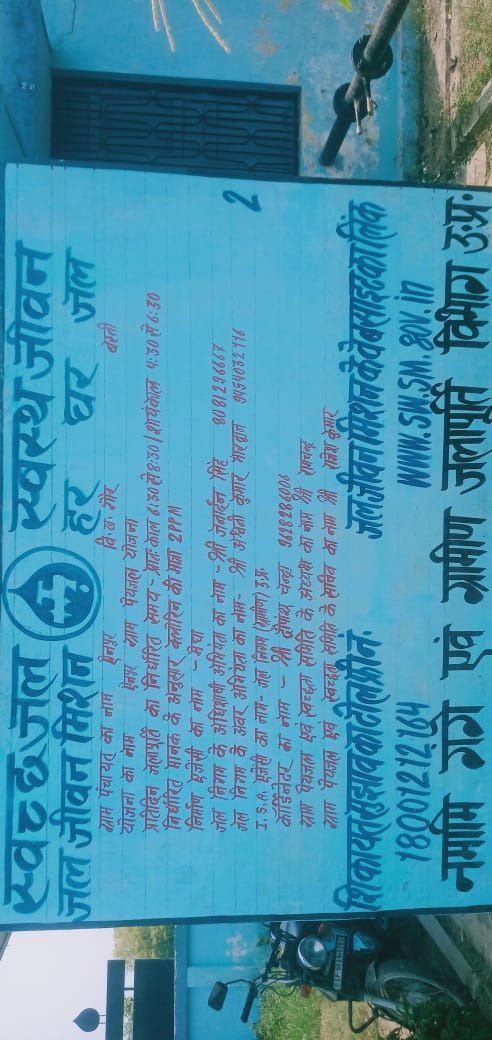 स्वच्छ जल स्वस्थ जीवन
जल जीवन मिशन हर घर जल
ग्राम पंचायत का नाम ऐनपुर वि.ख. गौर बस्ती
योजना का नाम ऐनपुर ग्राम पेयजल योजना
प्रतिदिन जलापूर्ति का निर्धारित समय - प्रातःकाल 6:30 से 8:30 / सायंकाल 4:30 से 6:30
निर्धारित मानक के अनुसार क्लोरिन की मात्रा 2 PPM
निर्माण एजेंसी का नाम - मेघा
जल निगम के अधिशाषी अभियंता का नाम - श्री जनार्दन सिंह 8081296667
जल निगम के अवर अभियंता का नाम - श्री अश्विनी कुमार भारद्वाज 9454032716
I.S.A. एजेंसी का नाम - जल निगम (ग्रामीण) उ.प्र.
कॉर्डिनेटर का नाम - श्री चन्द्रा 9628286006
ग्राम पेयजल एवं स्वच्छता समिति के अध्यक्ष का नाम श्री रामचन्द्र
ग्राम पेयजल एवं स्वच्छता समिति के सचिव का नाम श्री राजेश कुमार
2
शिकायत सुझाव को टोल फ्री नं. जल जीवन मिशन के वेबसाइट को लिंक
18001212164 www.swsm.gov.in
नमामि गंगे एवं ग्रामीण जलापूर्ति विभाग उ:प्र: